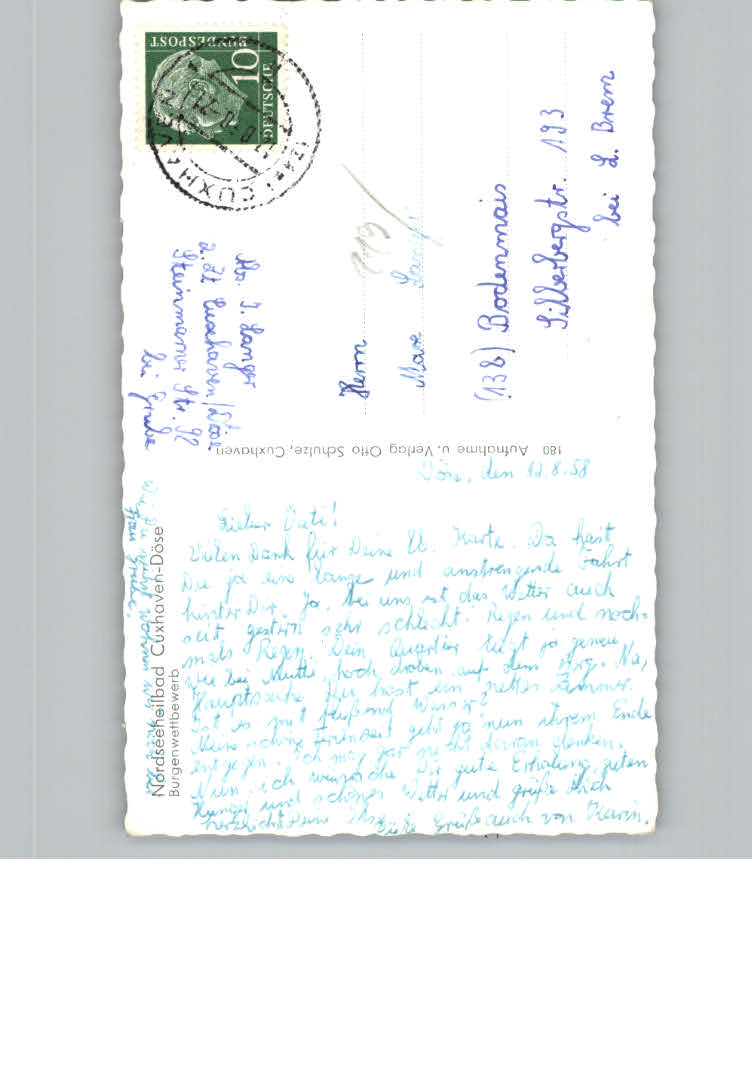 Nordseeheilbad Cuxhaven-Döse
Burgenwettbewerb
Döse, den 12.8.58
Lieber Vati!
Vielen Dank für Deine lb. Karte. Da hast
Du ja eine lange und anstrengende Fahrt
hinter Dir. Ja, bei uns ist das Wetter auch
seit gestern sehr schlecht. Regen und noch-
mals Regen. Dein Quartier liegt ja genau
wie bei Mutti, hoch droben auf dem Berg. Na,
Hauptsache Du hast ein nettes Zimmer.
Ist es mit fließend Wasser?
Meine schöne Ferienzeit geht ja nun ihrem Ende
entgegen. Ich mag gar nicht daran denken.
Nun ich wünsche Dir gute Erholung, guten
Hunger und schönes Wetter und grüße Dich
herzlichst Deine
Viele Grüße auch von Karin.
Frau Grube.
180 Aufnahme u. Verlag Otto Schulze, Cuxhaven
Abs. I. Langer
z. Zt. Cuxhaven/Döse
Steinmarner Str. 92
bei Grube
DEUTSCHE
BUNDESPOST
10
CUXHAVEN
Herrn
Max Langer
(13b) Bodenmais
Silberbergstr. 193
bei L. Brem